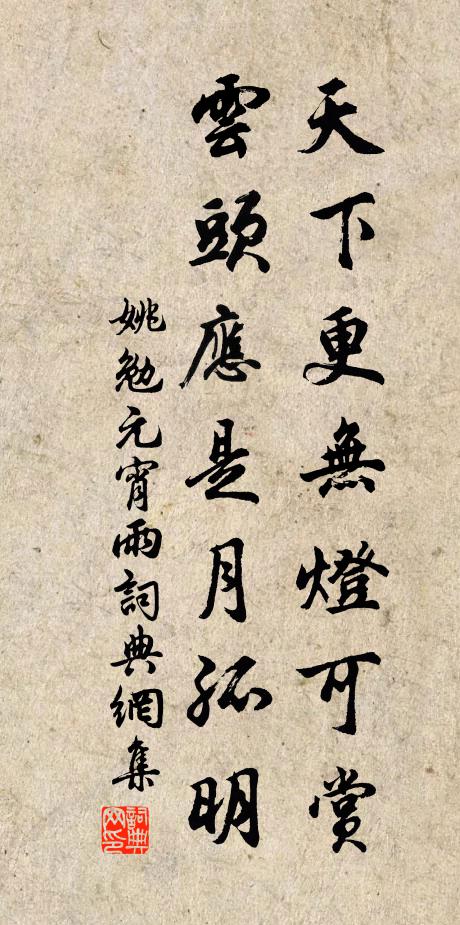 天下更無燈可賞
雲頭應是月孤明
姚勉元宵雨詞典網集
詞典网印